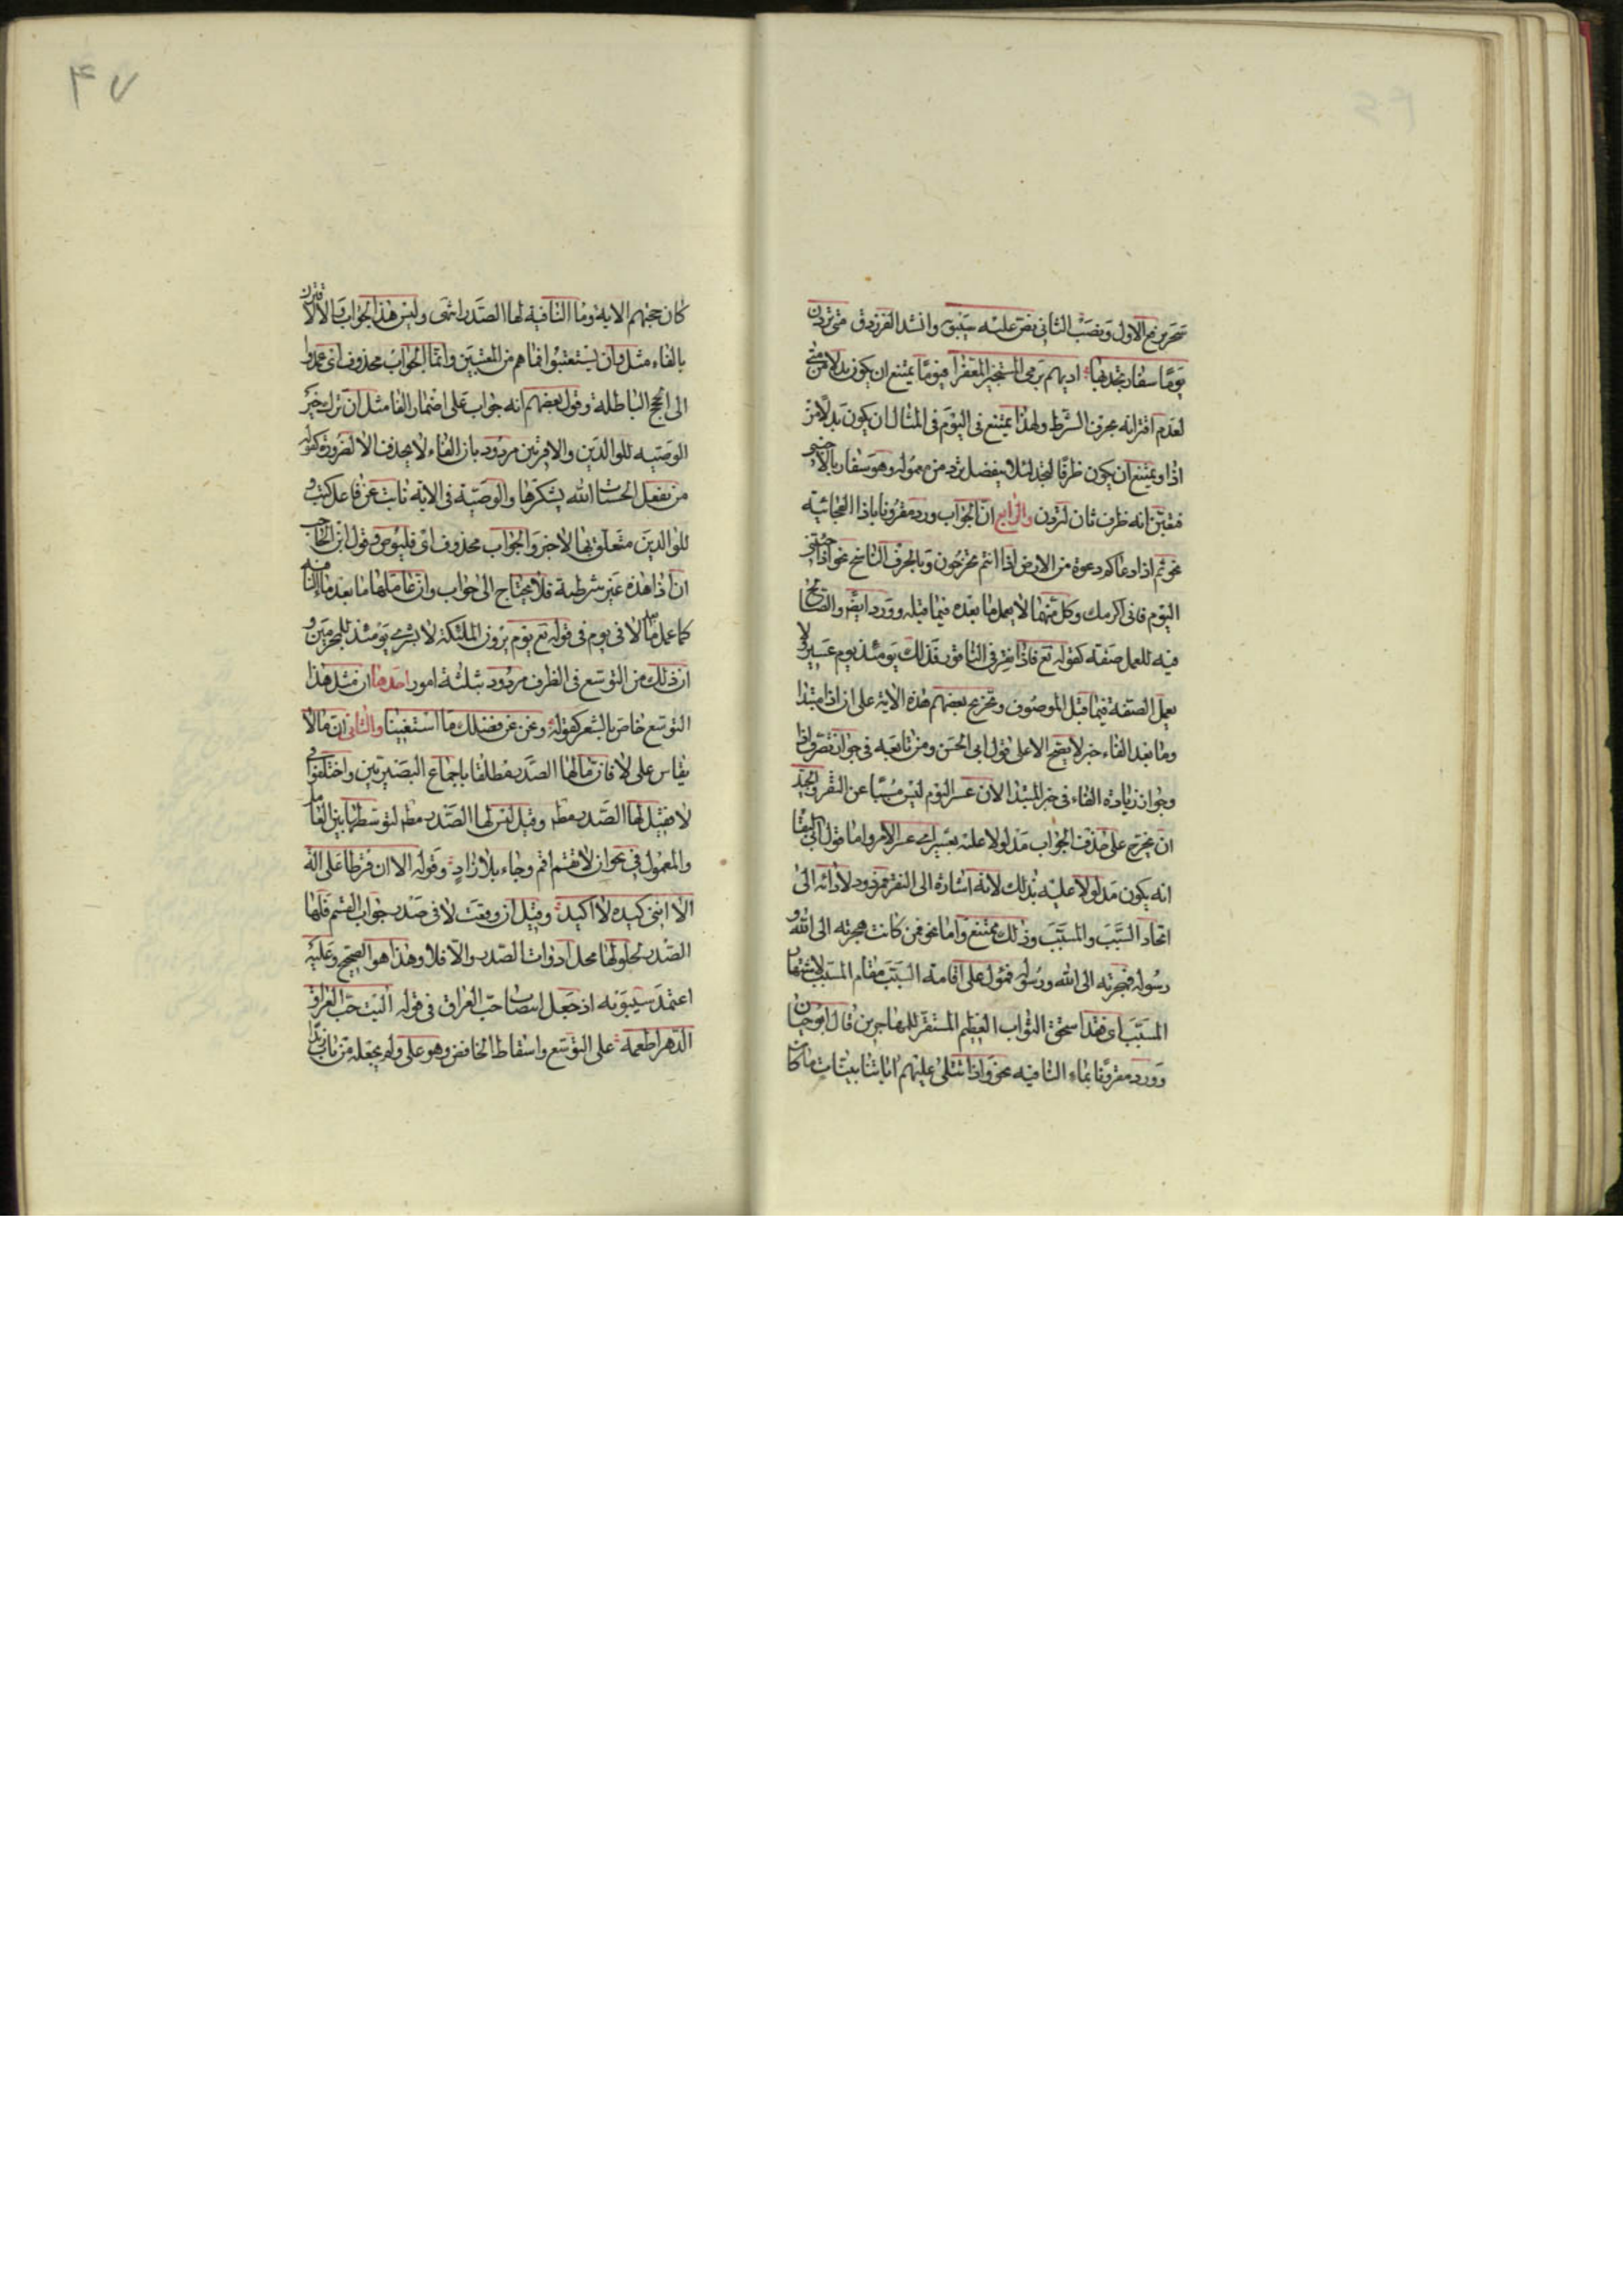 سحر برفع الاول ونصب الثانى نص عليه سيبويه وانشد الفرزدق متى تردن
يوما سفار تجدبها اديهم يرمى المستجيز المعفرا فيوما يمتنع ان يكون بدلا من متى
لعدم اقترانه بحرف الشرط ولهذا يمتنع فى اليوم فى المثال ان يكون بدلا من
اذا ويمتنع ان يكون ظرفا لتجد لئلا ينفصل ترد من معموله وهو سفار بالاجنبى
فتعين انه ظرف ثان لتردن والرابع ان الجواب ورد مقرونا باذا الفجائية
نحو ثم اذا دعاكم دعوة من الارض اذا انتم تخرجون وبالحرف الناسخ نحو اذا جئتنى
اليوم فانى اكرمك وكل منهما لا يعمل ما بعده فيما قبله وورد ايضا والصالح
فيه للعمل صفة كقوله تع فاذا نقر فى الناقور فذلك يومئذ يوم عسير ولا
يعمل الصفة فيما قبل الموصوف وتخريج بعضهم هذه الاية على ان اذا مبتدا
وما بعد الفاء خبر لا يصح الا على قول ابى الحسن ومن تابعه فى جواز تصرف اذا
وجواز زيادة الفاء فى خبر المبتدا لان عسر اليوم ليس مسببا عن النقر والجيد
ان يخرج على حذف الجواب مدلولا عليه بعسير اى عسر الامر واما قول ابى البقا
انه يكون مدلولا عليه بذلك لانه اشارة الى النقر فمردود لادائه الى
اتحاد السبب والمسبب وذلك ممتنع واما نحو فمن كانت هجرته الى الله و
رسوله فهجرته الى الله ورسوله فمؤل على اقامة السبب مقام المسبب لاشتهار
المسبب اى فقد استحق الثواب العظيم المستقر للمهاجرين قال ابو حيان
وورد مقرونا بماء النافيه نحو واذا تتلى عليهم اياتنا بينات ما كان
۴۷
كان حجتهم الاية وما النافية لها الصدر انتهى وليس هذا بجواب والا لاقترن
بالفاء مثل وان يستعتبوا فما هم من المعتبين وانما الجواب محذوف اى عمدوا
الى الحجج الباطلة وقول بعضهم انه جواب على اضمار الفا مثل ان ترك خيرا
الوصيه للوالدين والاقربين مردود بان الفاء لا يحذف الا لضرورة كقوله
من يفعل الحسنات الله يشكرها والوصية فى الاية نائب عن فاعل كتب و
للوالدين متعلق بها لا خبر والجواب محذوف اى فليوص وقول ابن الحاجب
ان اذا هذه غير شرطية فلا يحتاج الى جواب وان عاملها ما بعد ماء النافية
كما عمل ما بعد لا فى يوم فى قوله تع يوم يرون الملئكة لا بشرى يومئذ للمجرمين و
ان ذلك من التوسع فى الظرف مردود بثلثة امور احدها ان مثل هذا
التوسع خاص بالشعر كقوله ونحن عن فضلك ما استغنينا والثانى ان ما لا
يقاس على لا فان ما لها الصدر مطلقا باجماع البصريين واختلفوا فى
لا فقيل لها الصدر مطم وقيل ليس لها الصدر مطم لتوسطها بين العامل
والمعمول فى نحو ان لا تقم اقم وجاء بلا زاد وقوله الا ان قرطا على الة
الا اننى كيده لا اكيد وقيل ان وقعت لا فى صدر جواب القسم فلها
الصدر لحلولها محل ادوات الصدر والا فلا وهذا هو الصحيح وعليه
اعتمد سيبويه اذ جعل انتصاب حب العراق فى قوله اليت حب العراق
الدهر اطعمه على التوسع واسقاط الخافض وهو على ولم يجعله من باب زيدا